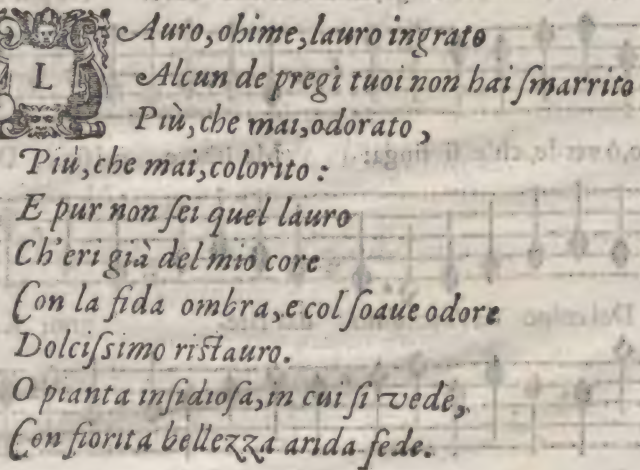 LAuro, ohime, lauro ingrato
Alcun de pregi tuoi non hai ſmarrito
Più, che mai, odorato,
Più, che mai, colorito:
E pur non ſei quel lauro
Ch'eri già del mio core
Con la fida ombra, e col ſoaue odore
Dolciſsimo riſtauro.
O pianta inſidioſa, in cui ſi vede,
Con fiorita bellezza arida fede.